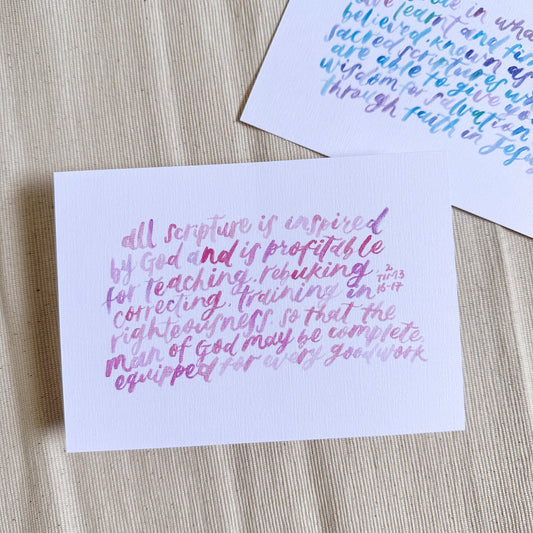 in wha
learnt and
believed. known
sacred scriptures
are able to give
wisdom for salvation
through faith in Jesus
all scripture is inspired
by God and is profitable
for teaching, rebuking,
correcting, training in
righteousness, so that the
man of God may be complete,
equipped for every good work
2
16-17